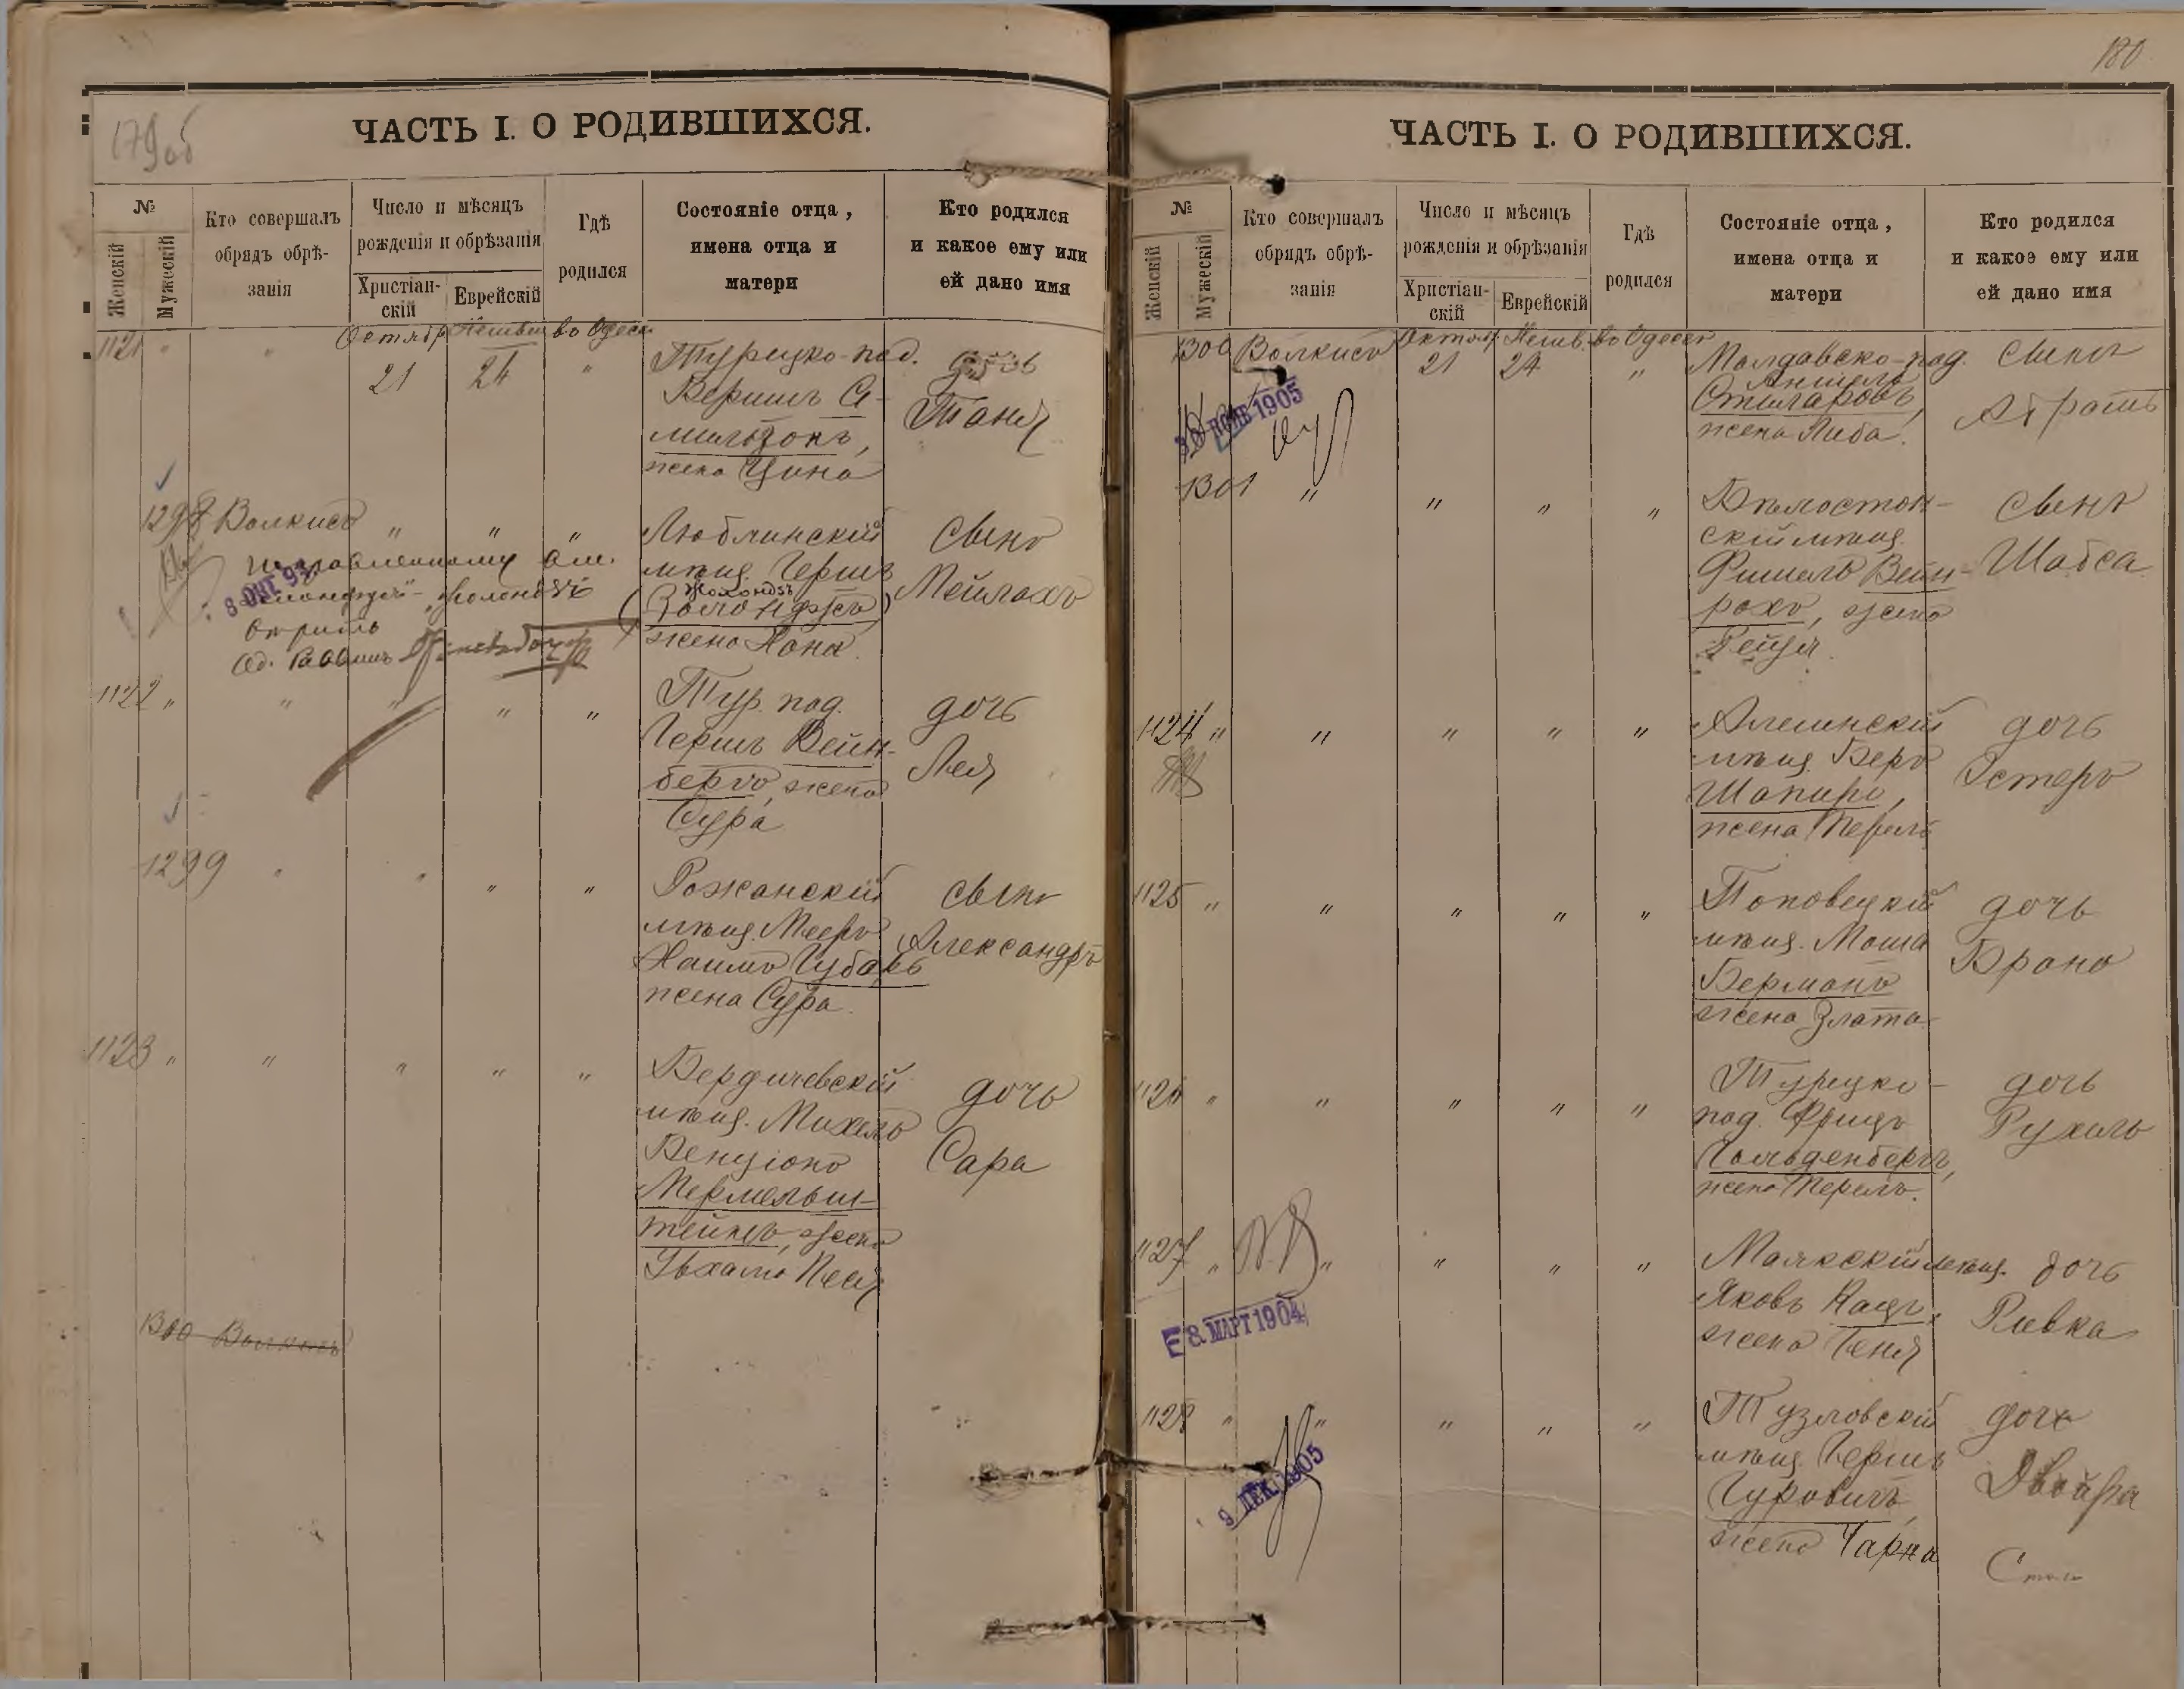 179об
ЧАСТЬ I. О РОДИВШИХСЯ.
№
Женскій
Мужескій
Кто совершалъ
обрядъ обрѣ-
занія
Число и мѣсяцъ
рожденія и обрѣзанія
Христіан-
скій
Еврейскій
Гдѣ
родился
Состояніе отца,
имена отца и
матери
Кто родился
и какое ему или
ей дано имя
1121 " "
21 24 "
Турецко-под.
Таня
жена Цина
1298 Волкисъ " " "
Люблинскій
мѣщ. Гершъ
жена Хана.
сынъ
Мейлахъ
8 ОКТ 93
Од. Раввинъ
1122 " " " " "
Тур. под.
Гершъ Вейн-
бергъ, жена
Сура
дочь
Лея
1299 " " " "
Рожанскій
мѣщ. Мееръ
Хаимъ Губарь
жена Сура.
сынъ
Александръ
1123 " " " " "
Бердичевскій
мѣщ. Михель
Бенціонъ
Мермельш-
тейнъ, жена
Песя
дочь
Сара
1300 Волкисъ
180
ЧАСТЬ I. О РОДИВШИХСЯ.
№
Женскій
Мужескій
Кто совершалъ
обрядъ обрѣ-
занія
Число и мѣсяцъ
рожденія и обрѣзанія
Христіан-
скій
Еврейскій
Гдѣ
родился
Состояніе отца,
имена отца и
матери
Кто родился
и какое ему или
ей дано имя
1300 Волкисъ
21 24 "
Молдавско-под.
Аншель
жена Либа.
сынъ
Абрамъ
1905
1301 " " " "
Бѣлосток-
скій мѣщ.
Фишель Вейн-
рохъ, жена
Рейзя.
сынъ
Шабса
1124 " " " " "
мѣщ. Беръ
Шапиро,
жена Перель
дочь
Эстеръ
1125 " " " " "
мѣщ. Моша
Берманъ
жена Злата
дочь
Брана
1126 " " " " "
Турецко-
под. Фрицъ
Гольденбергъ,
жена Перель.
дочь
Рухель
1127 " " " " "
Маякскій мѣщ.
Яковъ Кацъ,
жена Геня
дочь
Ривка
8 МАРТ 1904
1128 " " " " "
Тузловскій
мѣщ. Гершъ
Гуровичъ,
жена Чарна
дочь
Двойра
9 ДЕК 1905